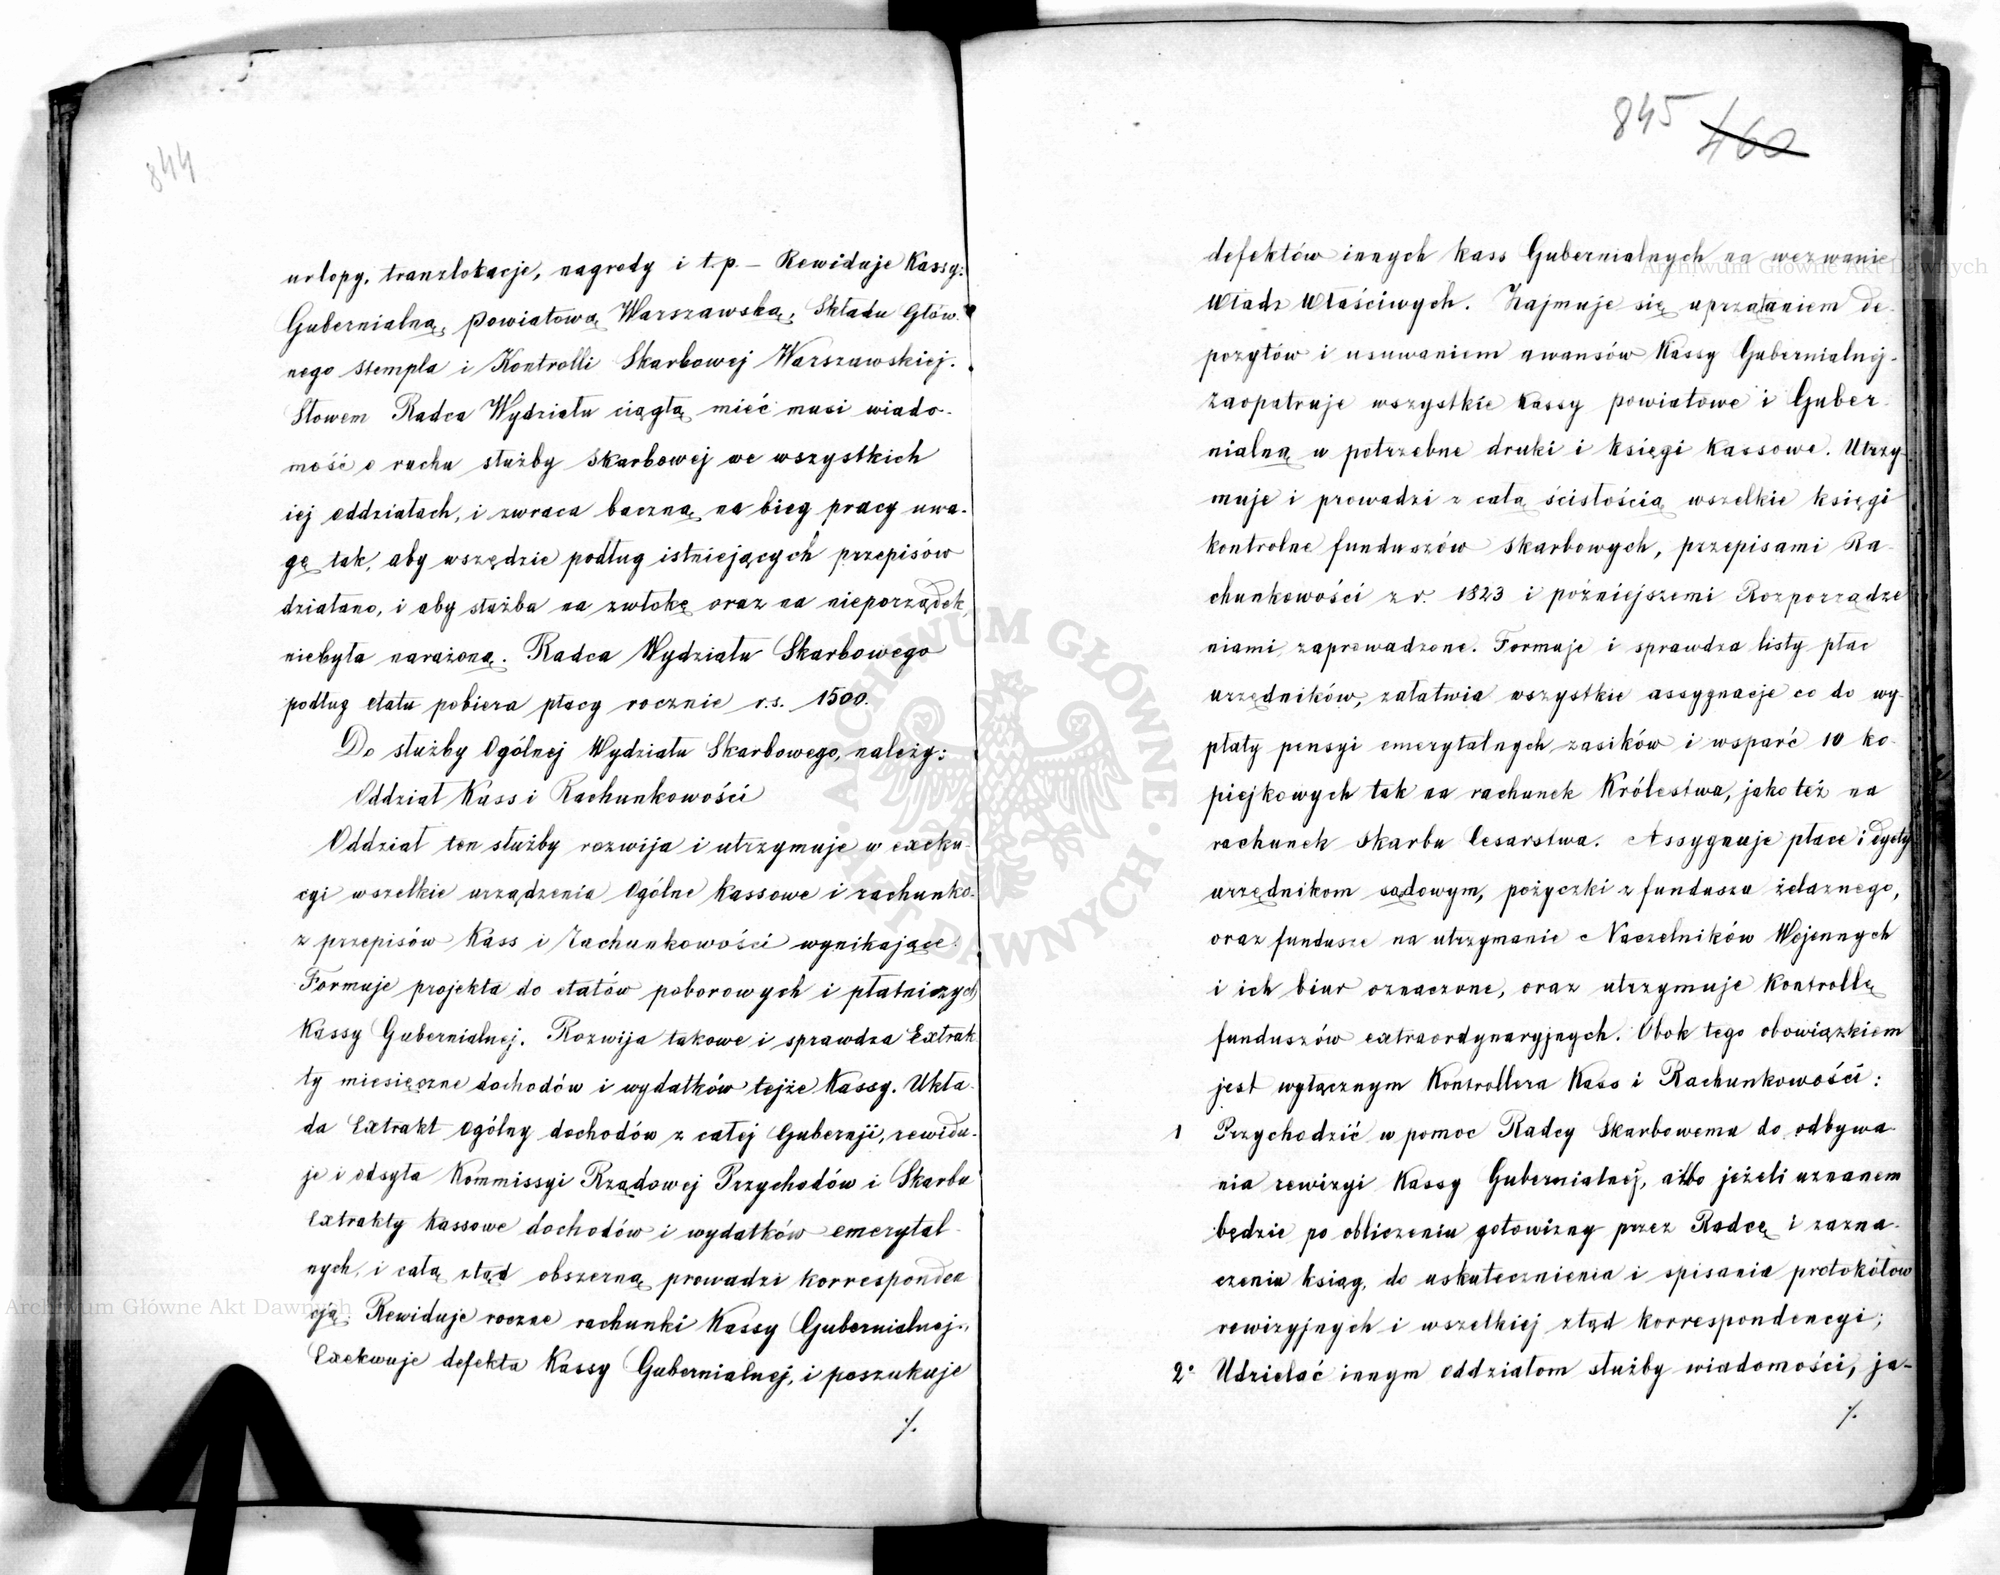 844
urlopy, tranzlokacje, nagrody i t.p. – Rewiduje Kassy:
Gubernialną, powiatową Warszawską, Składu Głów-
nego Stempla i Kontrolli Skarbowej Warszawskiej.
Słowem Radca Wydziału ciągłą mieć musi wiado-
mość o ruchu służby Skarbowej we wszystkich
iej oddziałach, i zwraca baczną na bieg pracy uwa-
gę tak, aby wszędzie podług istniejących przepisów
działano, i aby służba na zwłokę oraz na nieporządek,
niebyła narażoną. Radca Wydziału Skarbowego
podług etatu pobiera płacy rocznie r.s. 1500.
Do służby Ogólnej Wydziału Skarbowego, należy:
Oddział Kass i Rachunkowości
Oddział ten służby rozwija i utrzymuje w exeku-
cyi wszelkie urządzenia Ogólne Kassowe i rachunko-
z przepisów Kass i Rachunkowości wynikające.
Formuje projekta do etatów poborowych i płatniczych
Kassy Gubernialnej. Rozwija takowe i sprawdza Extrak
ty miesięczne dochodów i wydatków tejże Kassy. Ukła-
da Extrakt ogólny dochodów z całej Gubernji, rewidu-
je i odsyła Kommissyi Rządowej Przychodów i Skarbu
Extrakty Kassowe dochodów i wydatków emerytal-
nych, i całą ztąd obszerną prowadzi korresponden
cją. Rewiduje roczne rachunki Kassy Gubernialnej.,
Exekwuje defekta Kassy Gubernialnej, i poszukuje
./.
845 460
defektów innych kass Gubernialnych na wezwanie
Władz Właściwych. Zajmuje się uprzątaniem de-
pozytów i usuwaniem awansów Kassy Gubernialnej-
zaopatruje wszystkie Kassy powiatowe i Guber-
nialną w potrzebne druki i księgi Kassowe. Utrzy-
muje i prowadzi z całą ścisłością wszelkie księgi
kontrolne funduszów Skarbowych, przepisami Ra-
chunkowości z r. 1823 i późniejszemi Rozporządze
niami zaprowadzone. Formuje i sprawdza listy płac
urzędników, załatwia wszystkie assygnacje co do wy-
płaty pensyi emerytalnych, zasików i wsparć 10 ko-
piejkowych tak na rachunek Królestwa, jako też na
rachunek Skarbu Cesarstwa. Assygnuje płace i dyety
urzędnikom sądowym, pożyczki z funduszu żelaznego,
oraz fundusze na utrzymanie Naczelników Wojennych
i ich biur oznaczone, oraz utrzymuje Kontrollę
funduszów extraordynaryjnych. Obok tego obowiązkiem
jest wyłącznym Kontrollera Kass i Rachunkowości:
1 Przychodzić w pomoc Radcy Skarbowemu do odbywa-
nia rewizyi Kassy Gubernialnej, albo jeżeli uznanem
będzie po obliczeniu gotowizny przez Radcę i zazna-
czeniu ksiąg, do uskutecznienia i spisania protokółow
rewizyjnych i wszelkiej ztąd korrespondencyi;
2° Udzielać innym oddziałom służby wiadomości, ja-
./.
ARCHIWUM GŁÓWNE · AKT DAWNYCH ·
Archiwum Główne Akt Dawnych
Archiwum Główne Akt Dawnych